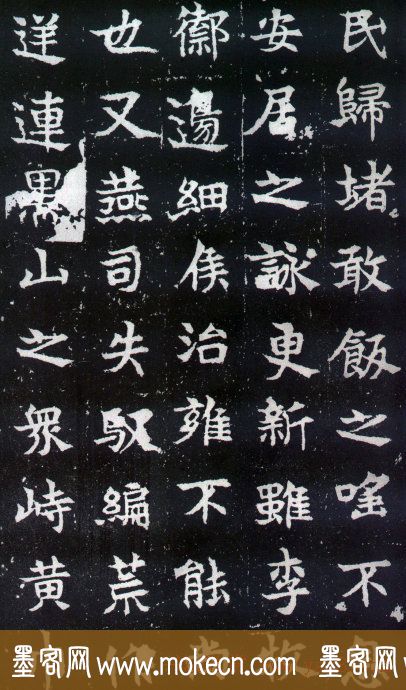 民歸堵敢飯之不
安居之詠更新雖李牧
禦邊細侯治雍不能尚
也又燕司失馭編荒
逆連黑山之衆峙黃巾
墨客网 www.mokecn.com 墨客网